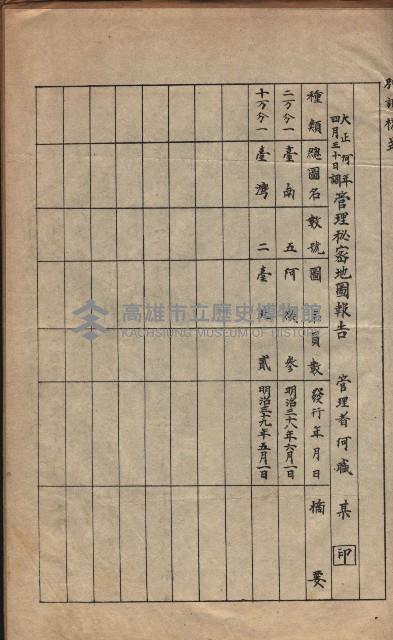 別記様式
大正何年四月三十日調 管理秘密地圖報告 管理者何職 某 印
種類 總圖名 數號 圖名 員數 發行年月日 摘要
二万分一 臺南 五 阿 參 明治三十八年六月一日
十万分一 臺灣 二 臺 貳 明治三十九年五月一日
高雄市立歷史博物館
KAOHSIUNG MUSEUM OF HISTORY